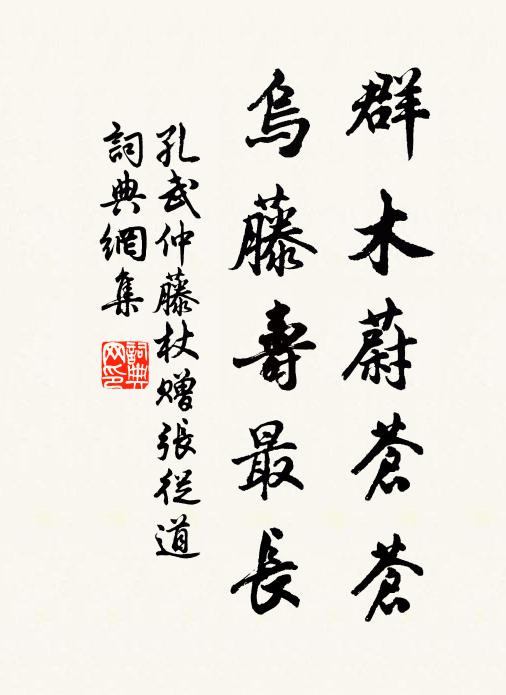 群木蔚蒼蒼
烏藤壽最長
孔武仲藤杖贈張從道
詞典網集
詞典網印